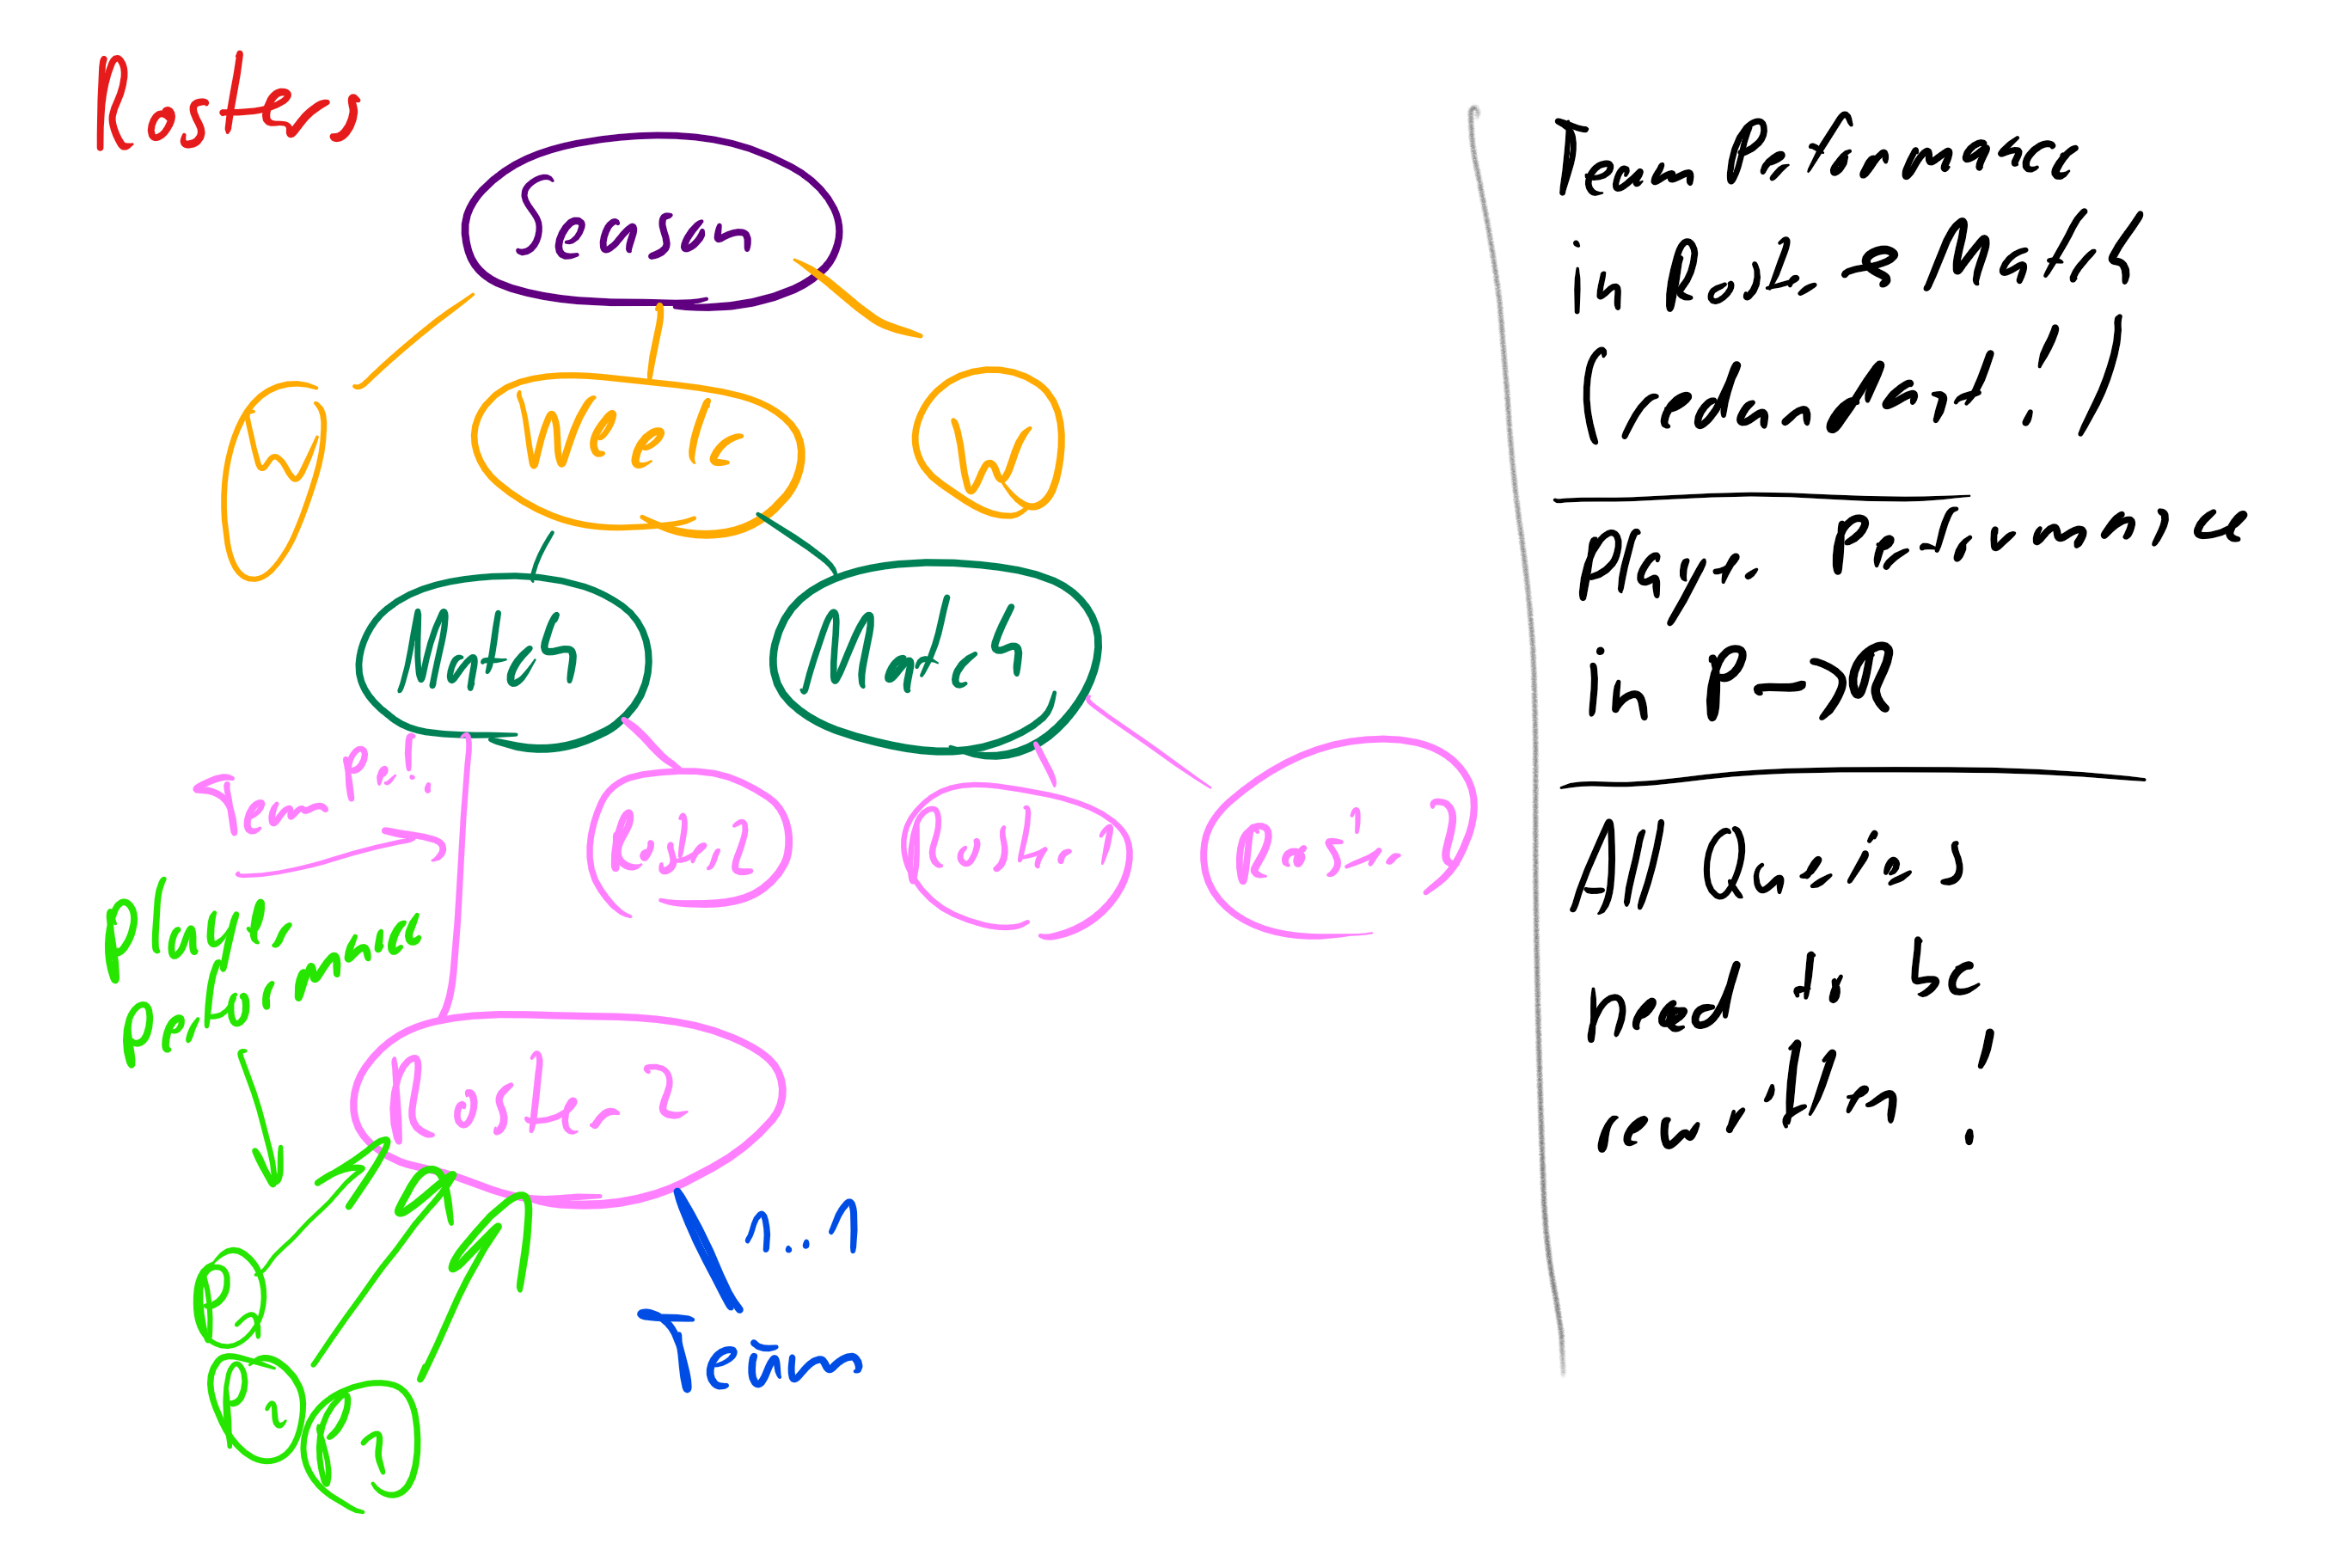 Rosters
Season
W
Week
W
Match
Match
Team Perf.
Roster 2
Roster 1
Roster 2
Player
Performance
Roster 2
1..1
Team
P1
P2
P3
Team Performance
in Roster & Match
(redundant!)
Player Performance
in P->R
All Queries
need to be
rewritten!